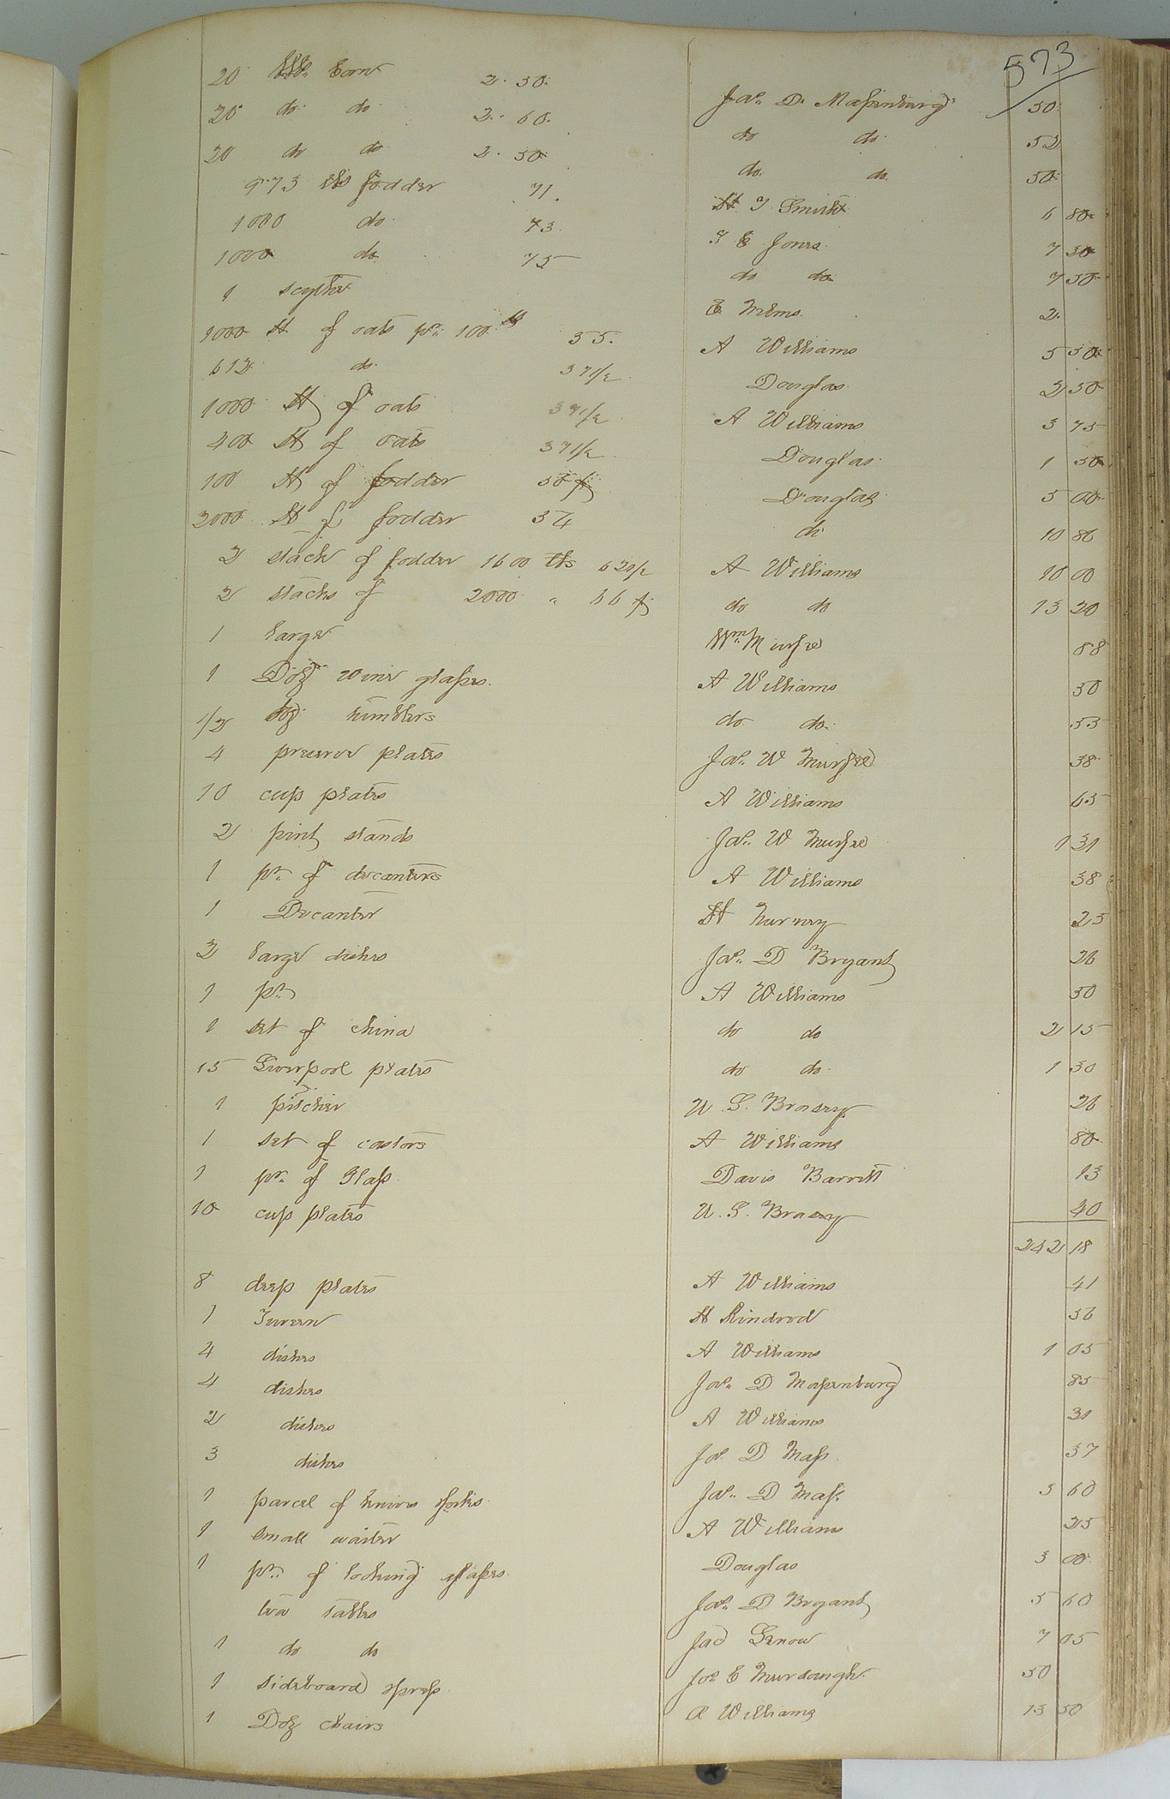 573
20 bbls Corn 2.50. Jas. D. Massenburg 50
20 do do 2.60. do do 52
20 do do 2.50 do do. 50
973 lbs fodder 71. H T Smith 6 80
1000 do 73 T E Jones 7 30
1000 do 75 do do 7 50
1 scythe E Mims 2.
1000 lb of oats pr. 100 lb 55. A Williams 5 50
612 do. 37 1/2 Douglas 2 30
1000 lb of oats 37 1/2 A Williams 3 75
400 lb of oats 37 1/2 Douglas 1 50
100 lb of fodder 50 Douglas 5 00
2000 lb of fodder 54 do 10 86
2 stack of fodder 1600 lbs 62 1/2 A Williams 10 00
2 stacks of 2000 " 66 do do 13 20
1 Wm Murfee 88
1 Doz wine glasses. A Williams 50
1/2 doz tumblers do do. 53
4 preserve plates Jas. W Murfee 38
10 cup plates A Williams 65
2 pint stands Jas. W Murfee 1 31
1 pr. of decanters A Williams 38
1 Decanter H 25
2 large dishes Jas. D Bryant 26
1 pr A Williams 50
1 set of china do do 2 15
15 Liverpool plates do do. 1 30
1 pitcher U. G. 26
1 set of castors A Williams 80
1 pr. of Glass Davis Barrett 13
10 cup plates U. G. 40
242 18
8 deep plates A Williams 41
1 Tureen H Kindred 56
4 dishes A Williams 1 05
4 dishes Jas. D Massenburg 85
2 dishes A Williams 30
3 dishes Jas D Mass 37
1 parcel of knives forks Jas. D Mass. 3 60
1 small waiter A Williams 25
1 pr. of looking glasses. Douglas 3 00
two tables Jas. D Bryant 5 60
1 do do 7 05
1 sideboard press Jos E Murdaugh. 50
1 Doz chairs A Williams 13 50